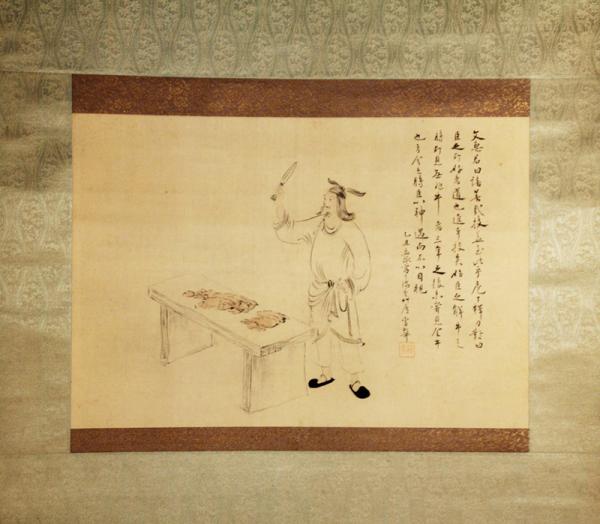 文惠君曰譆善哉技蓋至此乎庖丁釋刀對曰
臣之所好者道也進乎技矣始臣之解牛之
時所見无非牛者三年之後未嘗見全牛
也方今之時臣以神遇而不以目視
乙丑